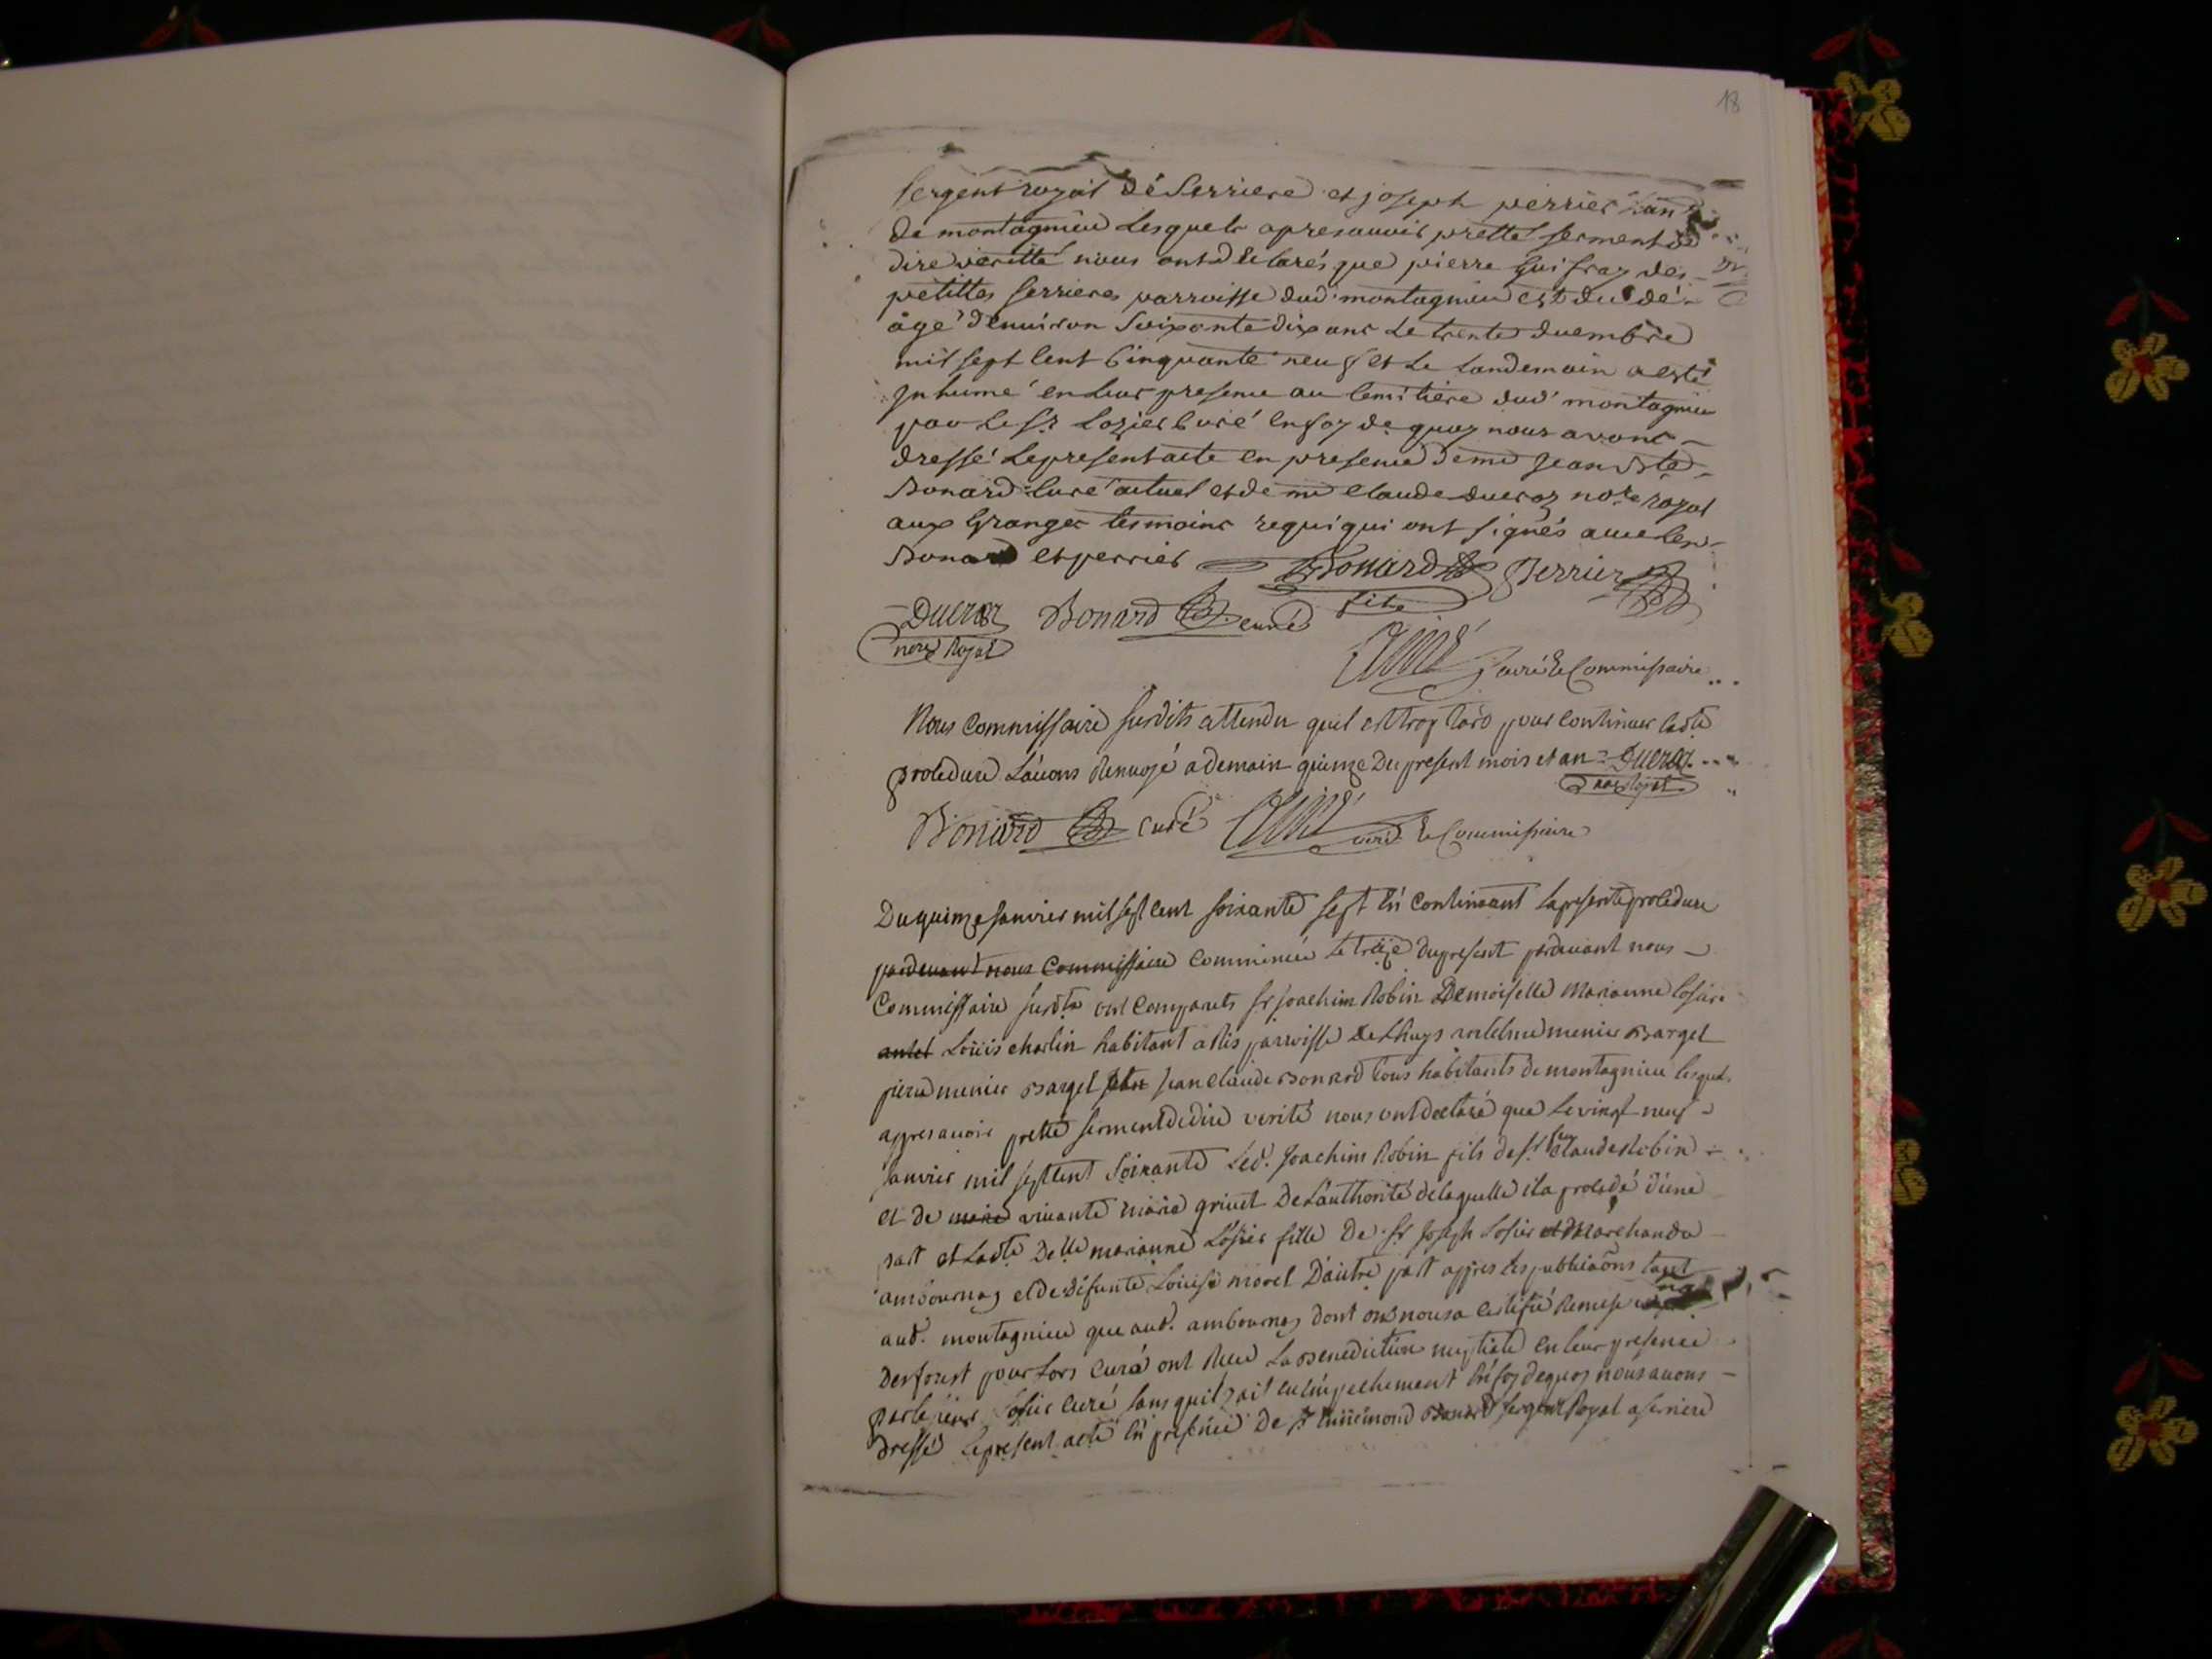 18
sergent royal dé Serriere et joseph perrier
de montagnieu Lesquels apres auvir pretté serment de
dire veritté nous ont déclarés que pierre Guifray des
petittes serrieres parroisse dud' montagnieu est
âgé d'enuiron Soixante dix ans Le trente
mil sept Cent Cinquante neuf et Le Landemain a esté
Inhumé en Leur presence au Cemitière dud' montagnieu
par Le Sr Lozier Curé en foy de quoy nous avons
dressé Le present acte en presence de me Jean Bte
Bonard Curé actuel et de me Claude Ducroz nore royal
aux Granges tesmoins requi qui ont signés avec Les
Bonard et perrier Bonard Perrier
fils
Ducroz Bonard curé
nore Royal
Aimé curé & Commissaire
Nous Commissaire susdits attendu quil est trop tard pour Continuer Ladte
procedure Láuons Renuoyé a demain quinze Du present mois et an Ducroz
nore Royal
Bonard curé Aimé curé & Commissaire
Du quinze Janvier mil sept cent soixante sept En Continuant La presente procedure
pardevant nous Commissaire Commencée Le treize du present pardeuant nous
Commissaire susdts ont Comparuts Sr Joachim Robin Demoiselle Marianne Losier
Loüis charlin habitant a Ris parroisse de Lhuys menier Barget
pierre menier Barget Jean Claude Bonard tous habitants de montagnieu Lesquels
appres auoir pretté serment de dire verité nous ont declaré que Le vingt neuf
Janvier mil sept Cent Soixante Led. Joachim Robin fils de Sr feu Claude Robin
et de vivante marie grivet De Láuthorité de laquelle il a procedé d'une
part et Ladte Delle marianne Lósier fille De Sr Joseph Losier Marchand a
ambournay et de défunte Loüise morel D'autre part appres Les publicaõns tant
aud. montagnieu que aud. ambournay dont on nous a Certifié Remise
Desforest pour Lors Curé ont Receu La Benediction nuptiale en leur presence
par le sieur Losier Curé sans quil y ait eu émpechement En foy de quoy nous auons
dressé Le present acte En presence De Sr Ennémond Bonard sergent Royal a serriere